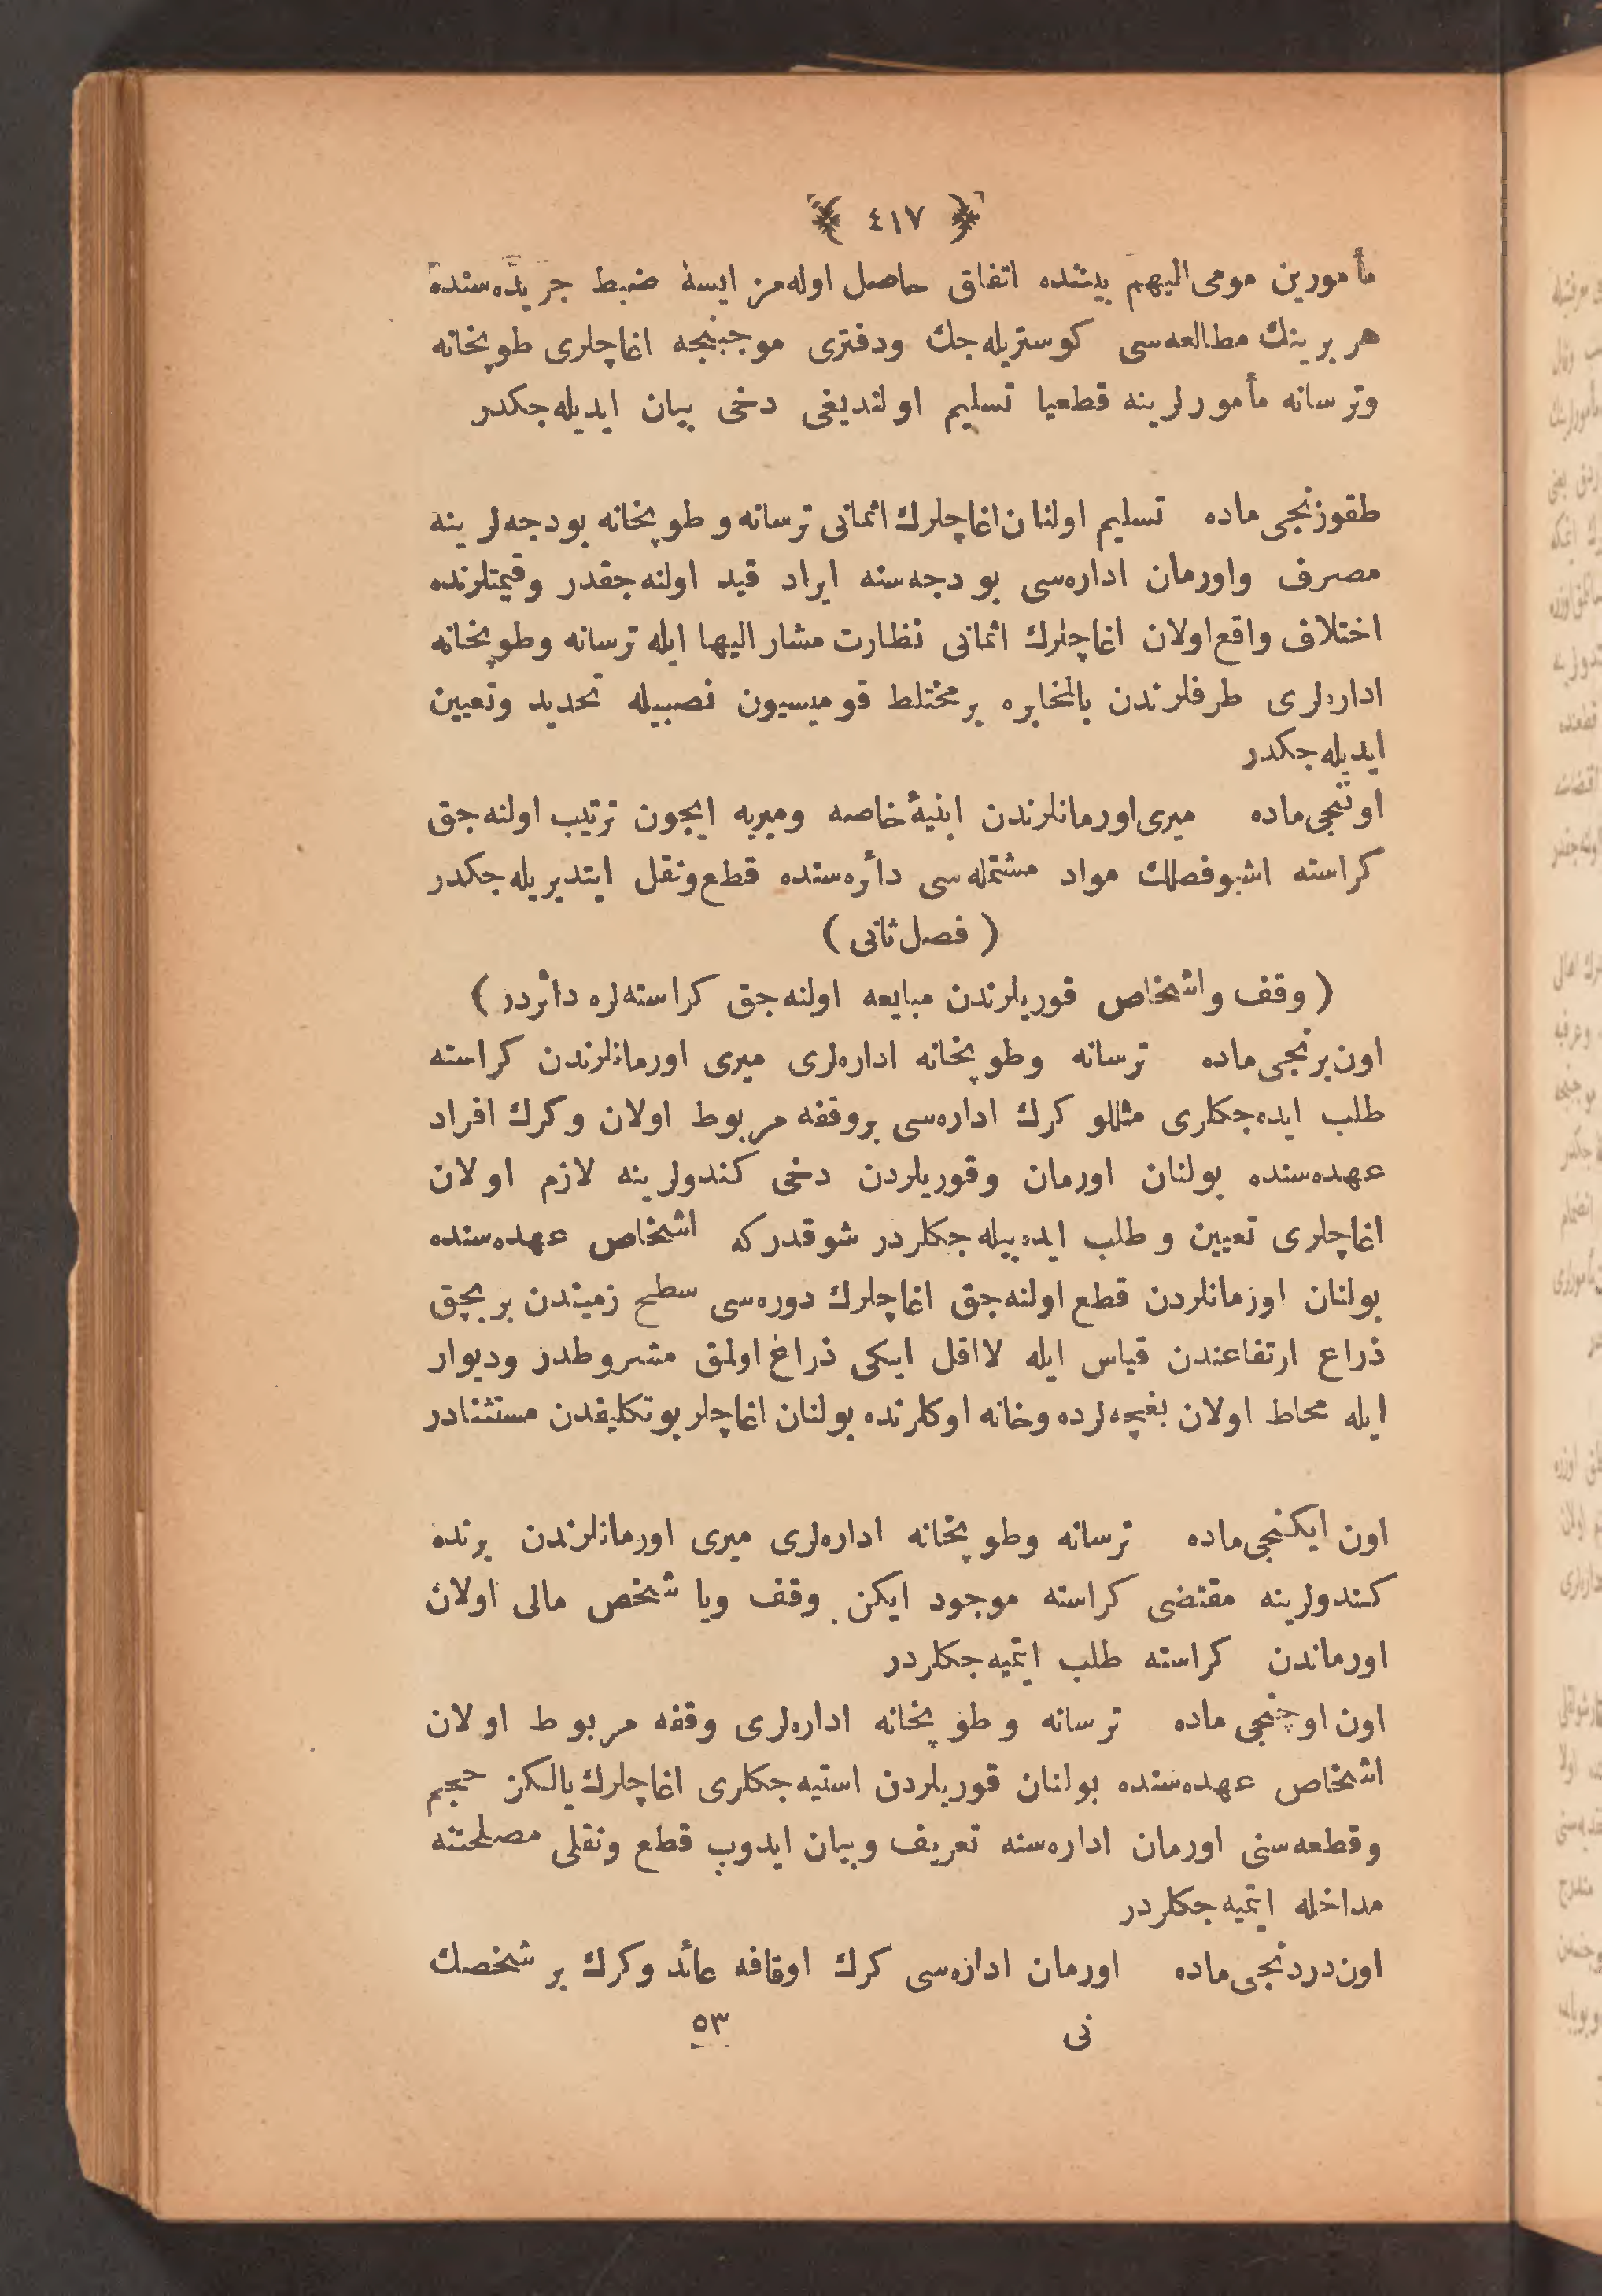 ﴿ ٤١٧ ﴾
مأمورین مومی الیهم بیننده اتفاق حاصل اوله‌مز ایسه ضبط جریده‌سنده
هر برینك مطالعه‌سی كوستریله‌جك ودفتری موجبنجه اغاچلری طوپخانه
وترسانه مأمورلرینه قطعیا تسلیم اولندیغی دخی بیان ایدیله‌جكدر
طقوزنجی ماده تسلیم اولنان اغاچلرك اثمانی ترسانه و طوپخانه بودجه‌لرینه
مصرف واورمان اداره‌سی بودجه‌سنه ایراد قید اولنه‌جقدر وقیمتلرنده
اختلاف واقع اولان اغاچلرك اثمانی نظارت مشار الیها ایله ترسانه وطوپخانه
اداره‌لری طرفلرندن بالمخابره بر مختلط قومیسیون نصبیله تحدید وتعیین
ایدیله‌جكدر
اوننجی ماده میری اورمانلرندن ابنیهٔ خاصه ومیریه ایچون ترتیب اولنه‌جق
كراسته اشبو فصلك مواد مشتمله‌سی دائره‌سنده قطع ونقل ایتدیریله‌جكدر
( فصل ثانی )
( وقف واشخاص قوریلرندن مبایعه اولنه‌جق كراسته‌لره دائردر )
اون برنجی ماده ترسانه وطوپخانه اداره‌لری میری اورمانلرندن كراسته
طلب ایده‌جكلری مثللو كرك اداره‌سی بر وقفه مربوط اولان وكرك افراد
عهده‌سنده بولنان اورمان وقوریلردن دخی كندولرینه لازم اولان
اغاچلری تعیین و طلب ایده‌بیله‌جكلردر شوقدركه اشخاص عهده‌سنده
بولنان اورمانلردن قطع اولنه‌جق اغاچلرك دوره‌سی سطح زمیندن بر بچق
ذراع ارتفاعندن قیاس ایله لااقل ایكی ذراع اولمق مشروطدر ودیوار
ایله محاط اولان بغچه‌لرده وخانه اوكلرنده بولنان اغاچلر بو تكلیفدن مستثنادر
اون ایكنجی ماده ترسانه وطوپخانه اداره‌لری میری اورمانلرندن برنده
كندولرینه مقتضی كراسته موجود ایكن وقف ویا شخص مالی اولان
اورماندن كراسته طلب ایتمیه‌جكلردر
اون اوچنجی ماده ترسانه و طوپخانه اداره‌لری وقفه مربوط اولان
اشخاص عهده‌سنده بولنان قوریلردن استیه‌جكلری اغاچلرك یالكز حجم
وقطعه‌سنی اورمان اداره‌سنه تعریف وبیان ایدوب قطع ونقلی مصلحتنه
مداخله ایتمیه‌جكلردر
اون دردنجی ماده اورمان اداره‌سی كرك اوقافه عائد وكرك بر شخصك
نی ٥٣